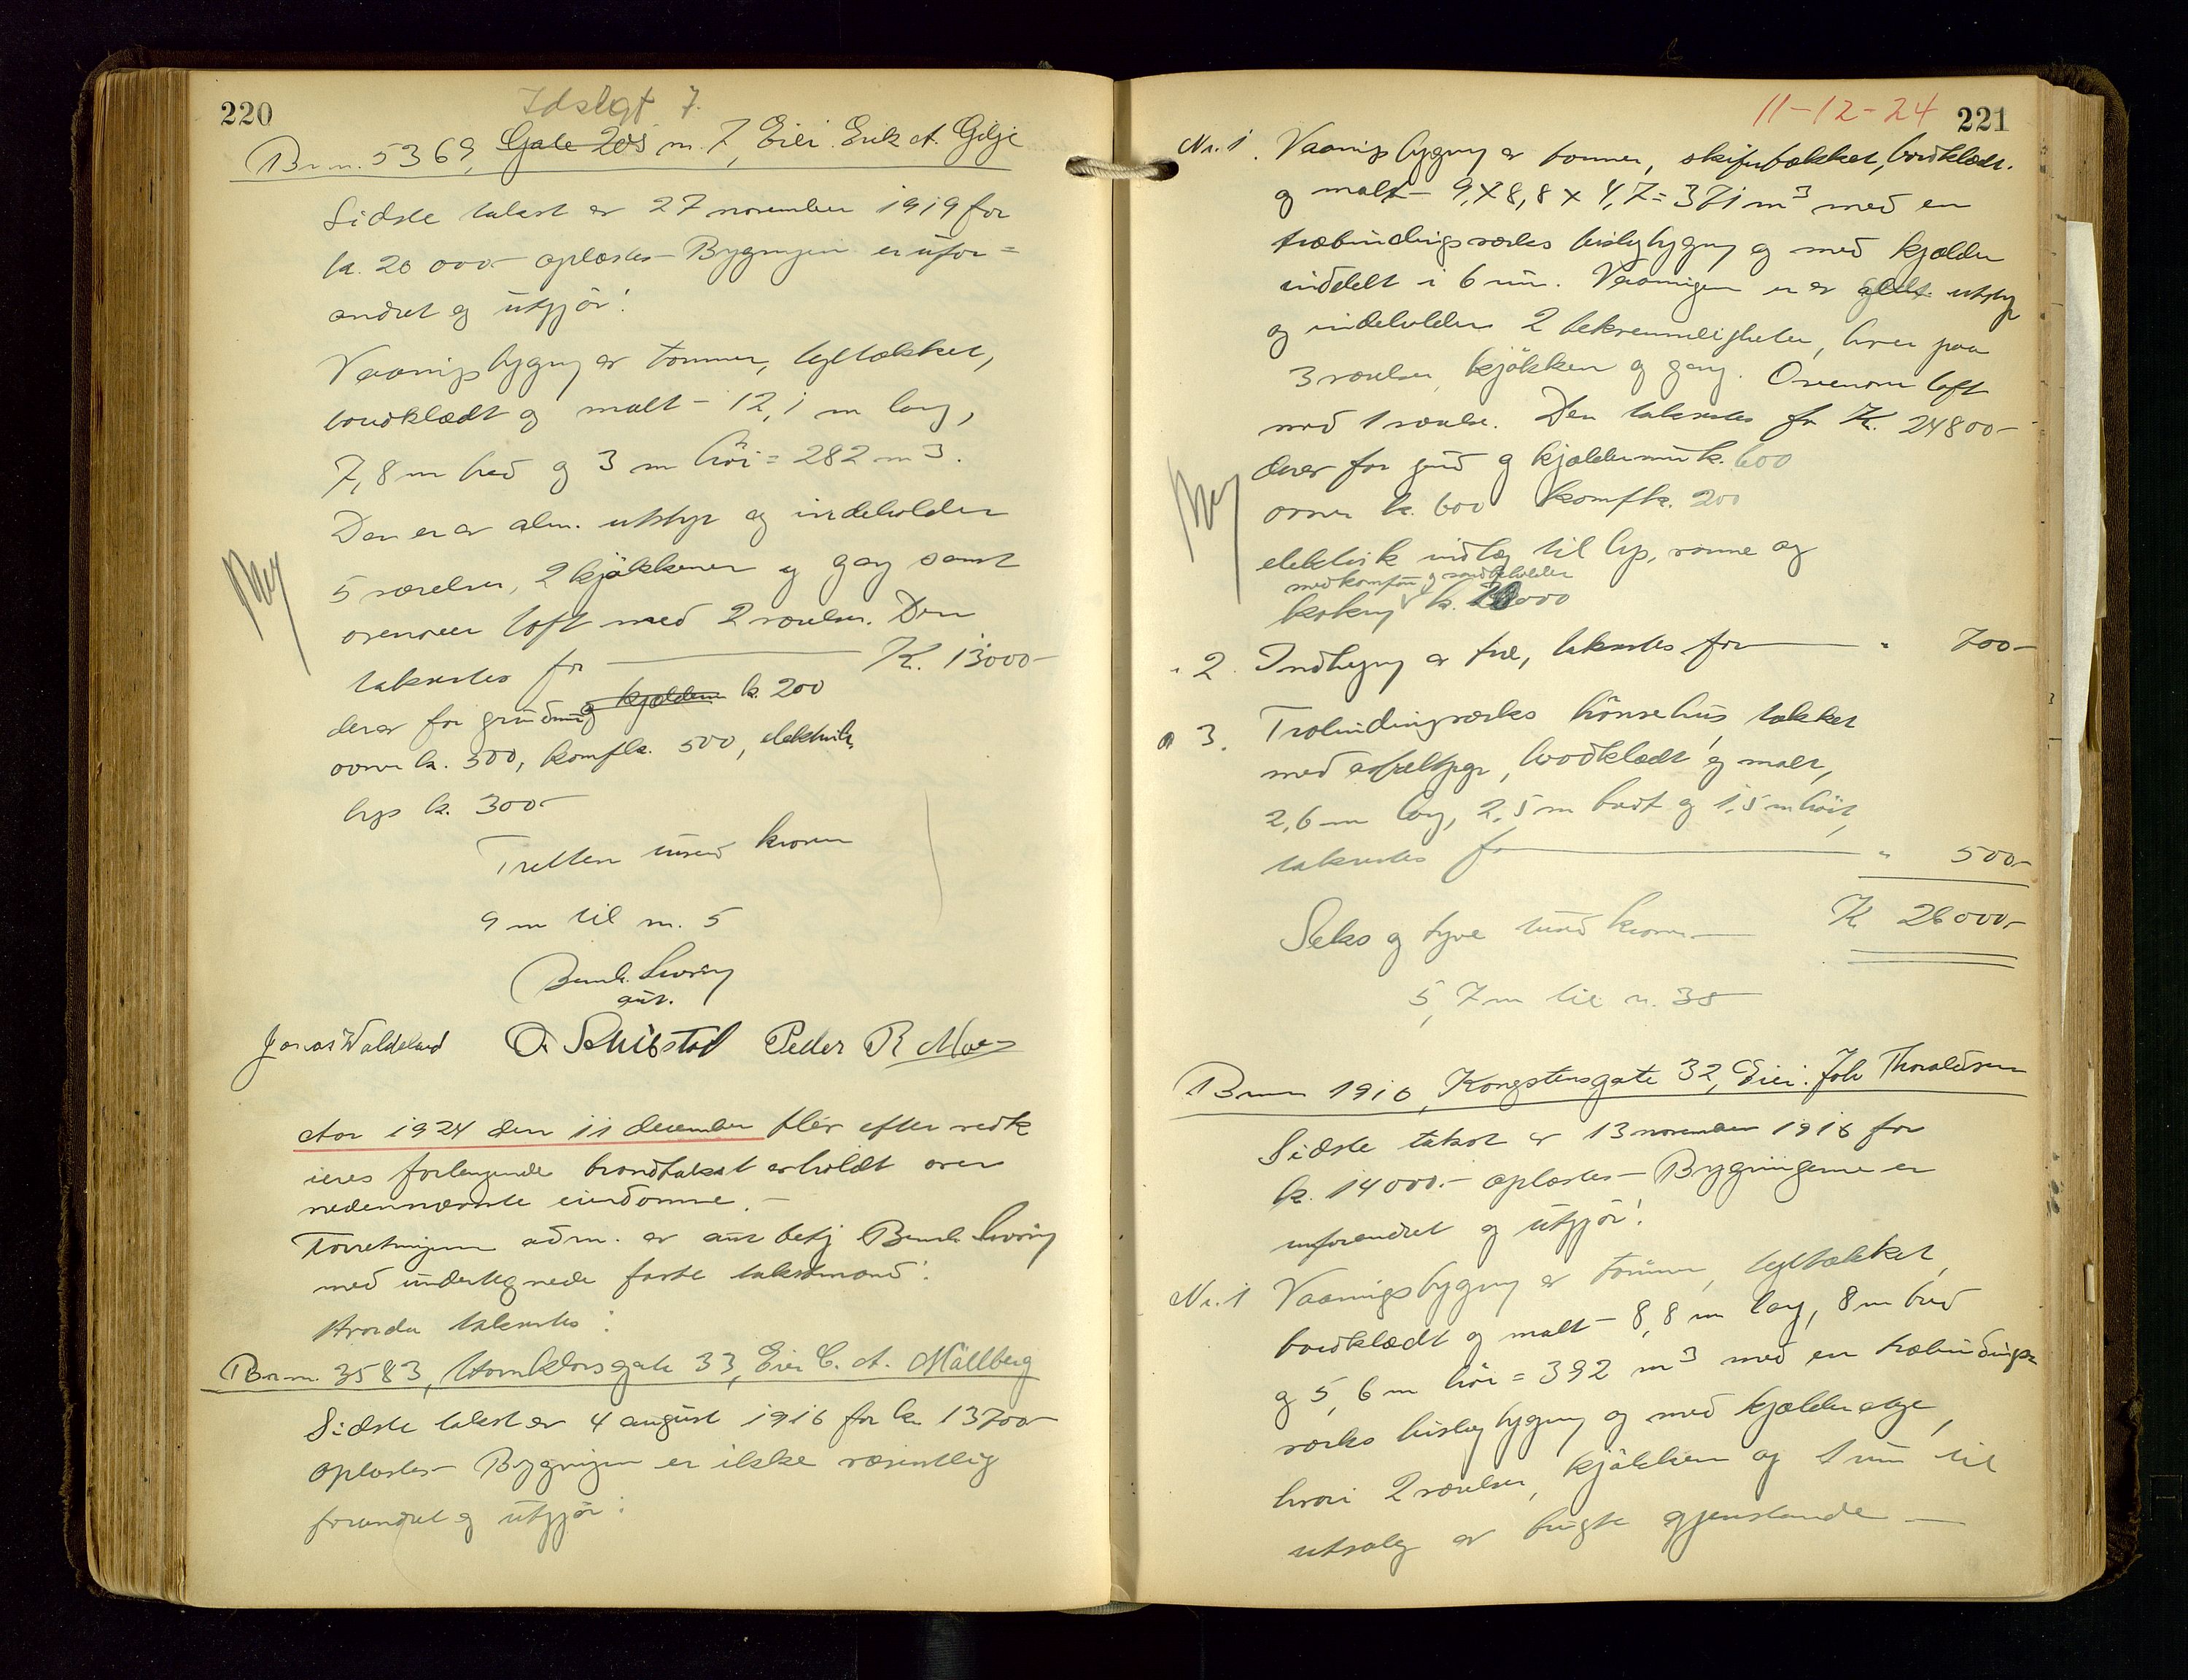 220
Idsøgt 7.
Br.nr. 5369, Gate 205 nr. 7, Eier: Erik A. Gilje
Sidste takst er 27 november 1919 for
kr. 20 000.- oplæstes - Bygningen er ufor=
andret og utgjör:
Vaaningsbygning av tømmer, tegltækket,
bordklædt og malt - 12,1 m lang,
7,8 m bred og 3 m höi = 282 m3.
Den er av alm. utstyr og indeholder
5 værelser, 2 kjøkkener og gang samt
ovenover loft med 2 værelser. Den
takseres for K. 13000-
derav for grundmur og kjelder k. 200
ovner k. 300, komf k. 500, elektrik
lys k. 300-
Tretten tusend kroner
9 m til nr. 5
Bernh. Lovring
aut.
Jonas Waldeland O. Schibstad Peder R. Moe
Aar 1924 den 11 december blev efter redk
ieres forlangende brandtakst avholdt over
nedennævnte eiendomme. -
Forretningen adm. av aut betj Bernh. Lovring
med undertegnede faste takstmænd:
Hvorda takseres:
Br.nr. 3583, Hornklovsgate 33, Eier C. A. Mällberg
Sidste takst er 4 august 1916 for kr. 13700-
oplæstes - Bygningen er ikke væsentlig
forandret og utgjör:
11-12-24 221
Nr. 1. Vaaningsbygning av tømmer, skifertækket, bordklædt
og malt - 9 x 8,8 x 4,7 = 371 m3 med en
træbindingsverks bislagbygning og med kjælder
inddelt i 6 rum. Vaaningen er av godt utstyr
og indeholder 2 bekvemmeligheter, hver paa
3 værelser, kjøkken og gang. Ovenover loft
med 1 værelse. Den takseres for K. 24800-
derav for grund og kjældermur k. 600
ovner k. 600 komf k. 200
elektrisk indlæg til lys, varme og
med komfur og vandbeholder
kokning k. 000
" 2. Indhegning av træ, takseres for " 700-
" 3. Træbindingsverks hönsehus, tækket
med asfaltpap, bordklædt og malt,
2,6 m lang, 2,5 m bredt og 1,5 m höit,
takseres for " 500-
Seks og tyve tusend kroner K 26000-
5,7 m til nr. 35
Brnr 1910, Kongstensgate 32, Eier: Joh Thoraldsen
Sidste takst er 13 november 1916 for
kr. 14000.- oplæstes - Bygningerne er
uforandret og utgjör:
Nr. 1 Vaaningsbygning av tømmer, tegltækket,
bordklædt og malt - 8,8 m lang, 8 m bred
og 5,6 m höi = 392 m3 med en træbindings-
verks bislagbygning og med kjælderetage,
hvori 2 værelser, kjøkken og 1 rum til
utsalg av brugte gjenstande -